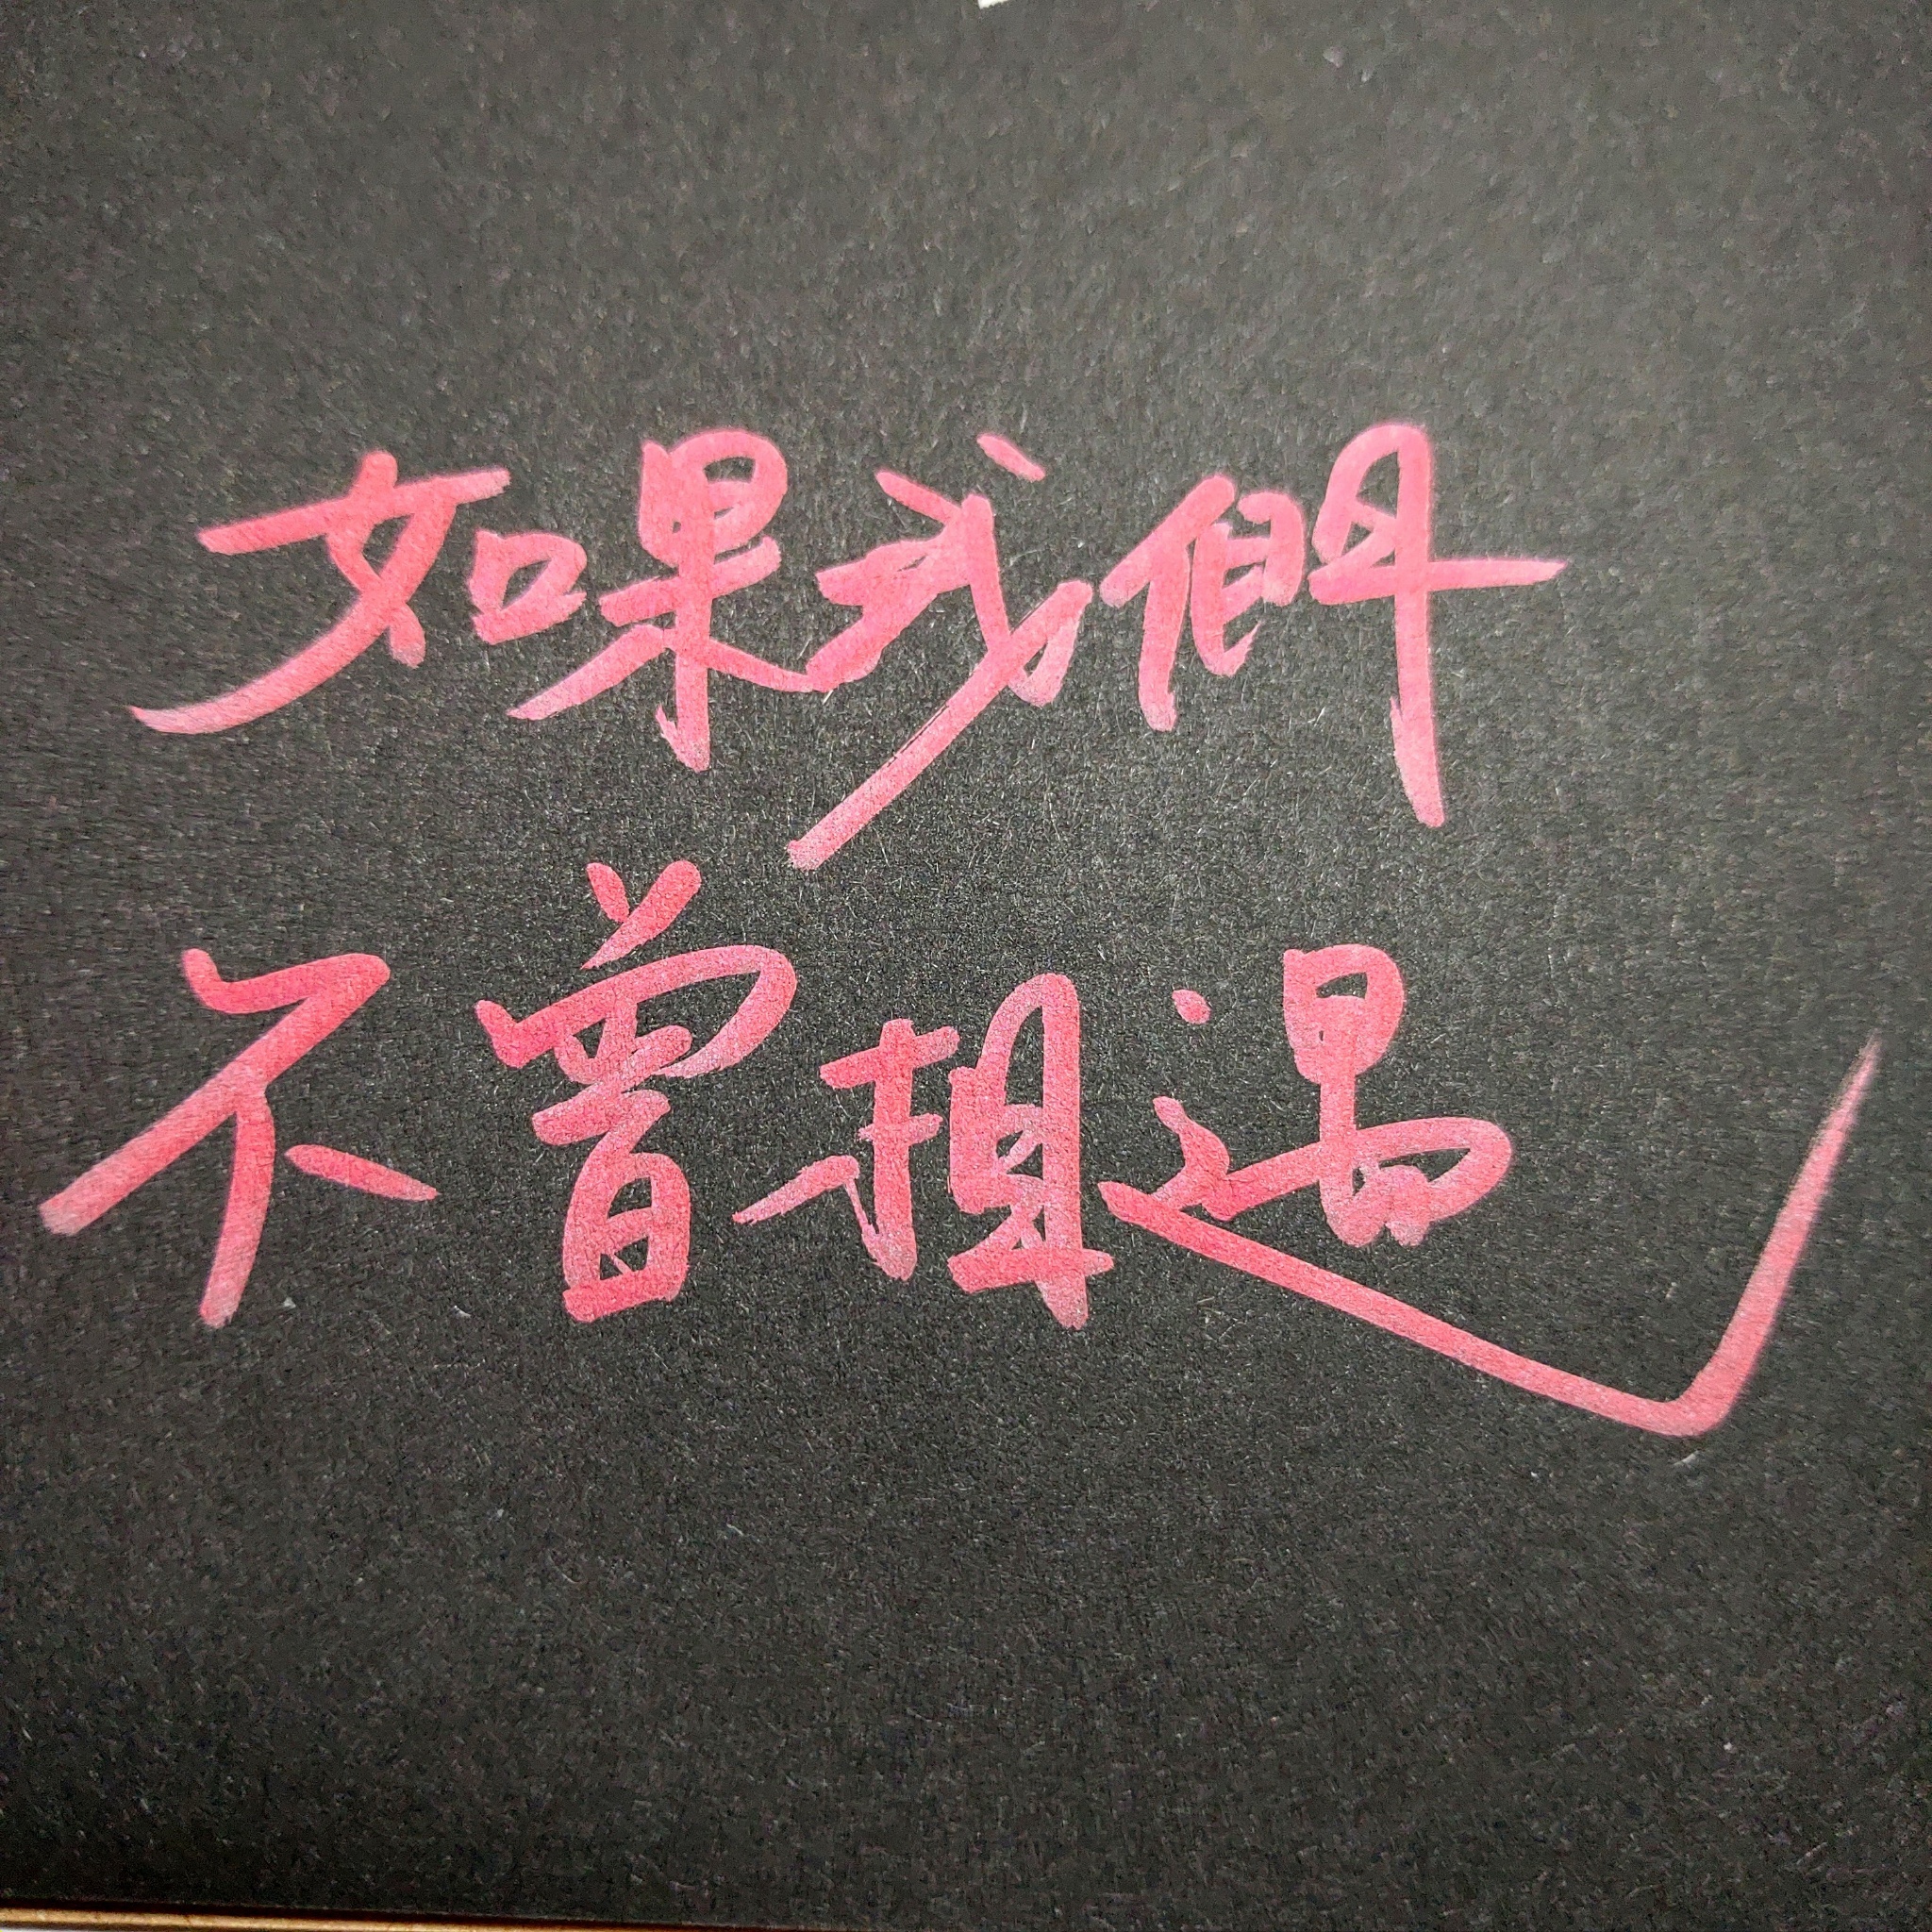 如果我們
不曾相遇